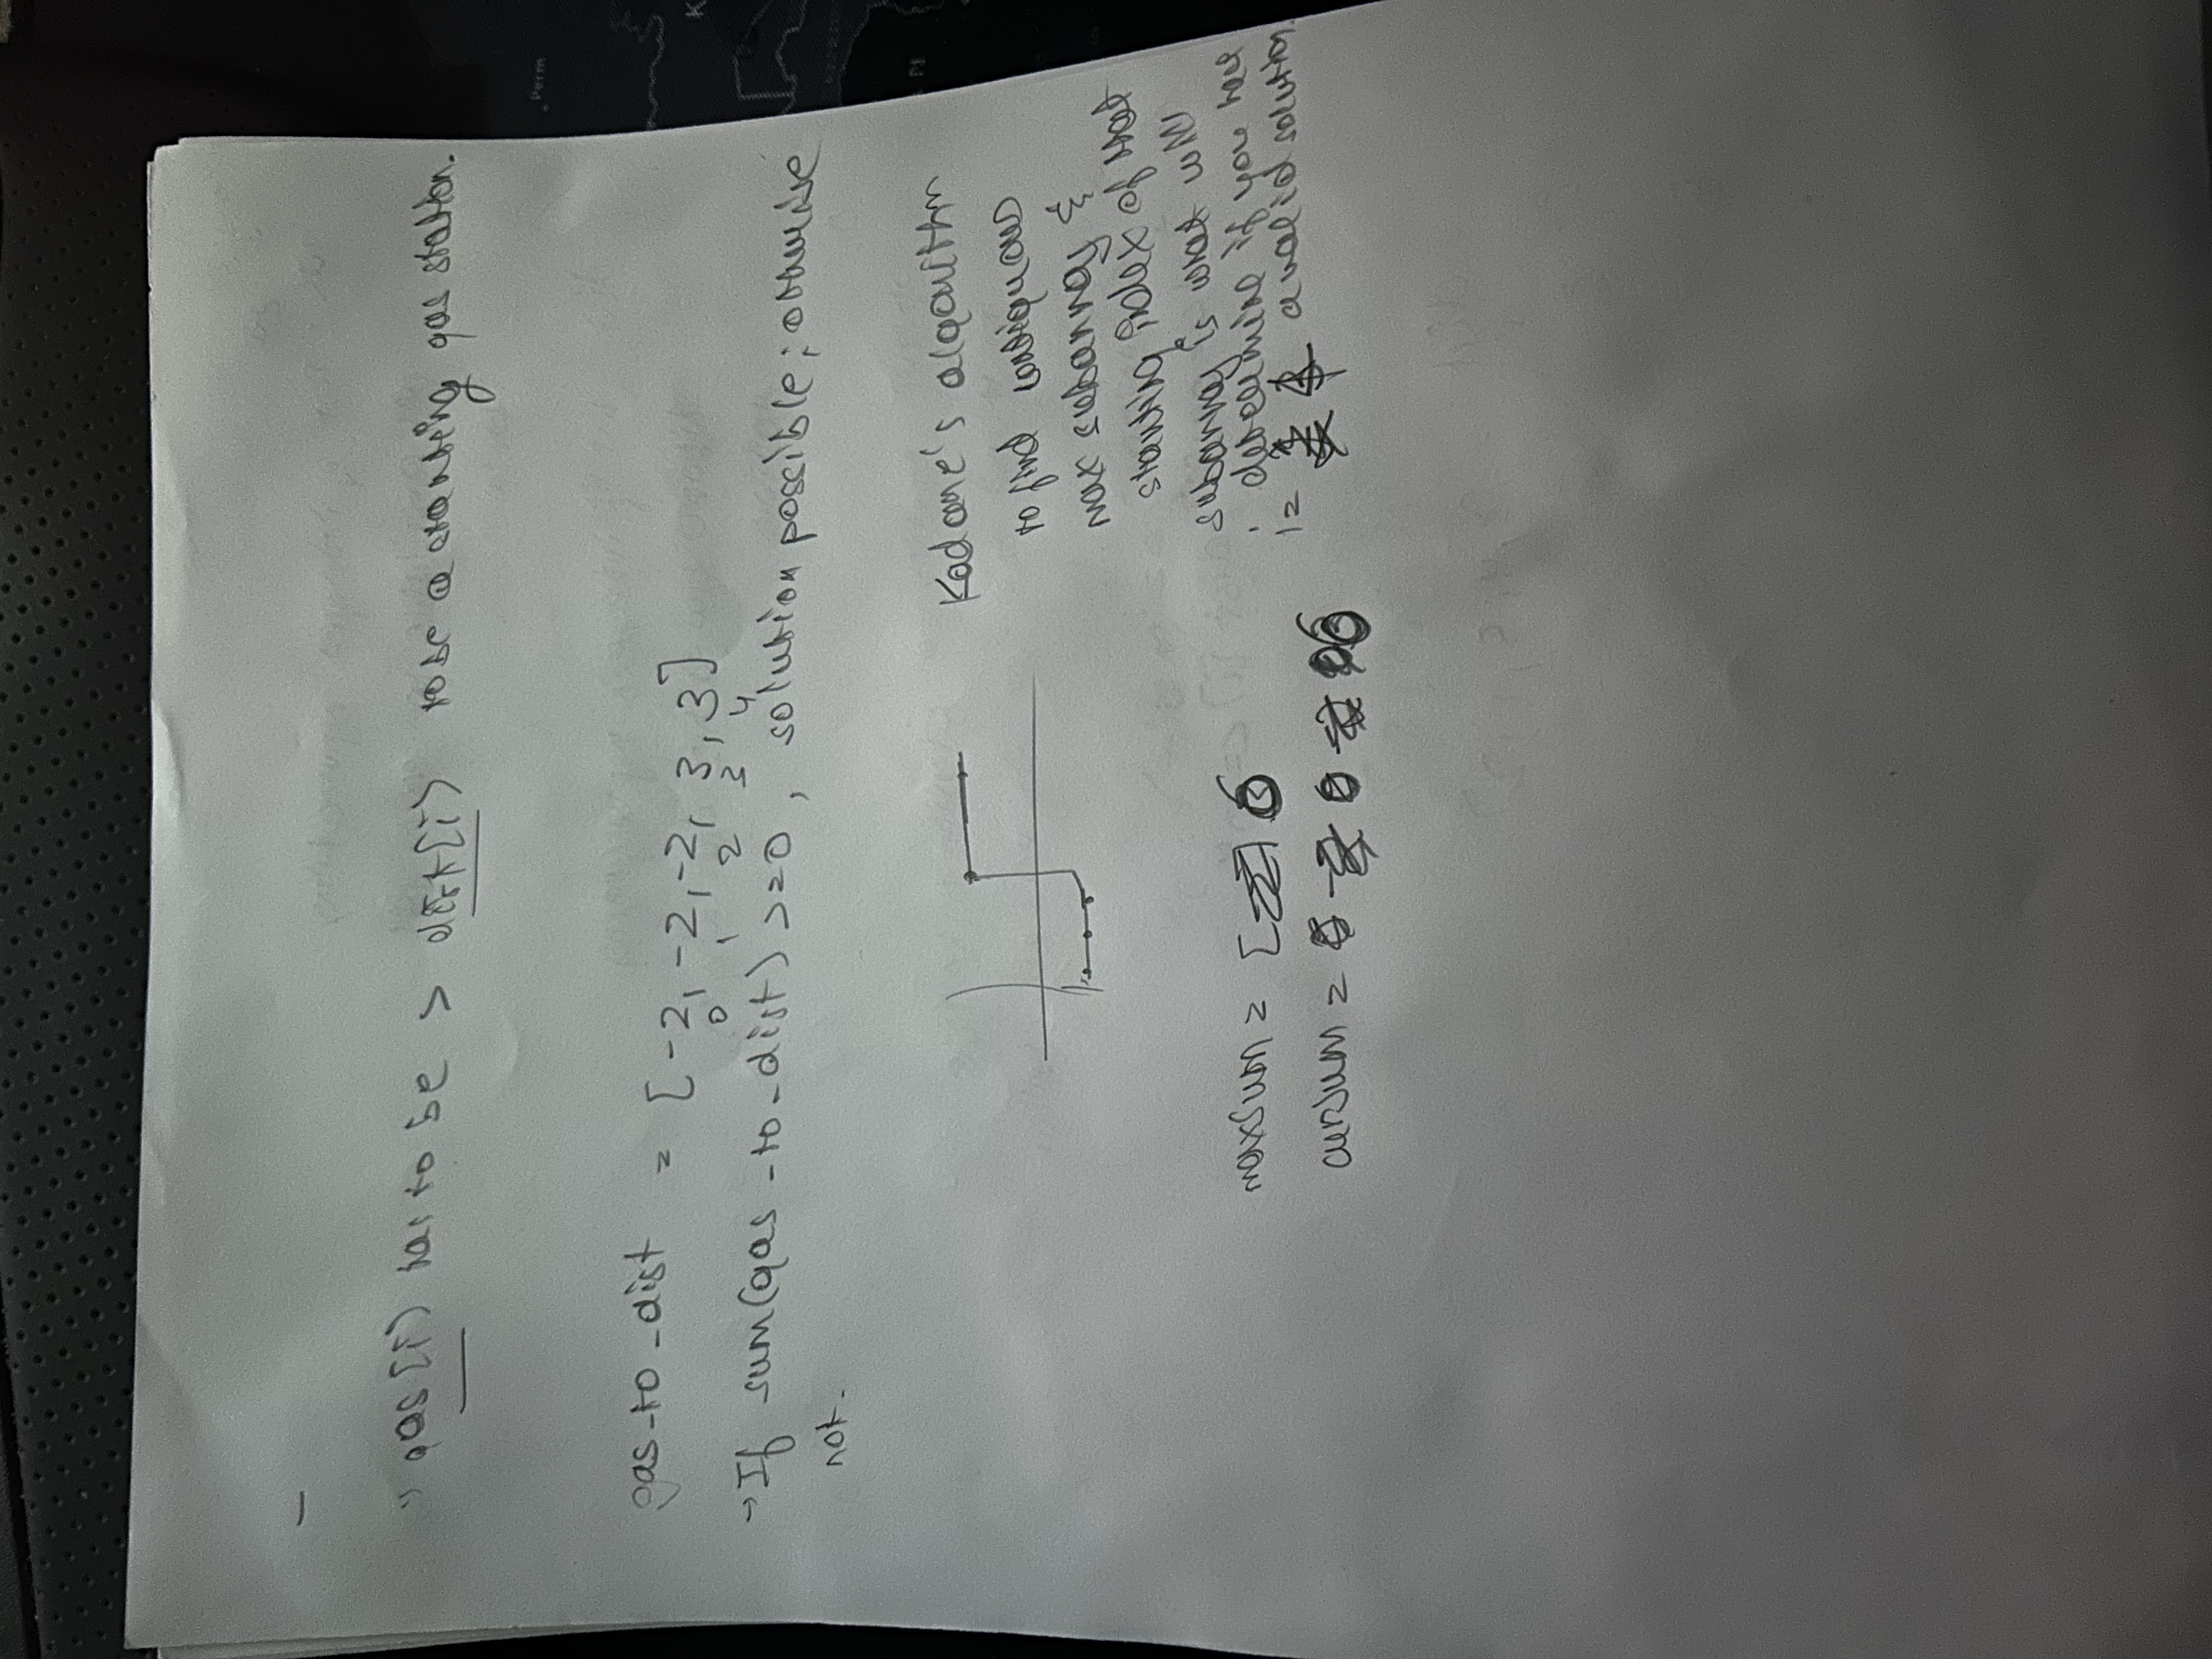 gas[i] has to be > dist[i] to be a starting gas station.
gas-to-dist = [-2, -2, -2, 3, 3]
0 1 2 3 4
→ If sum(gas-to-dist) >=0, solution possible; otherwise
not.
Kadane's algorithm
to find contiguous
max subarray &
starting index of that
subarray is what will
determine if you have
a valid solution.
i =
maxSum = 6
curSum = 6
Perm
K
N